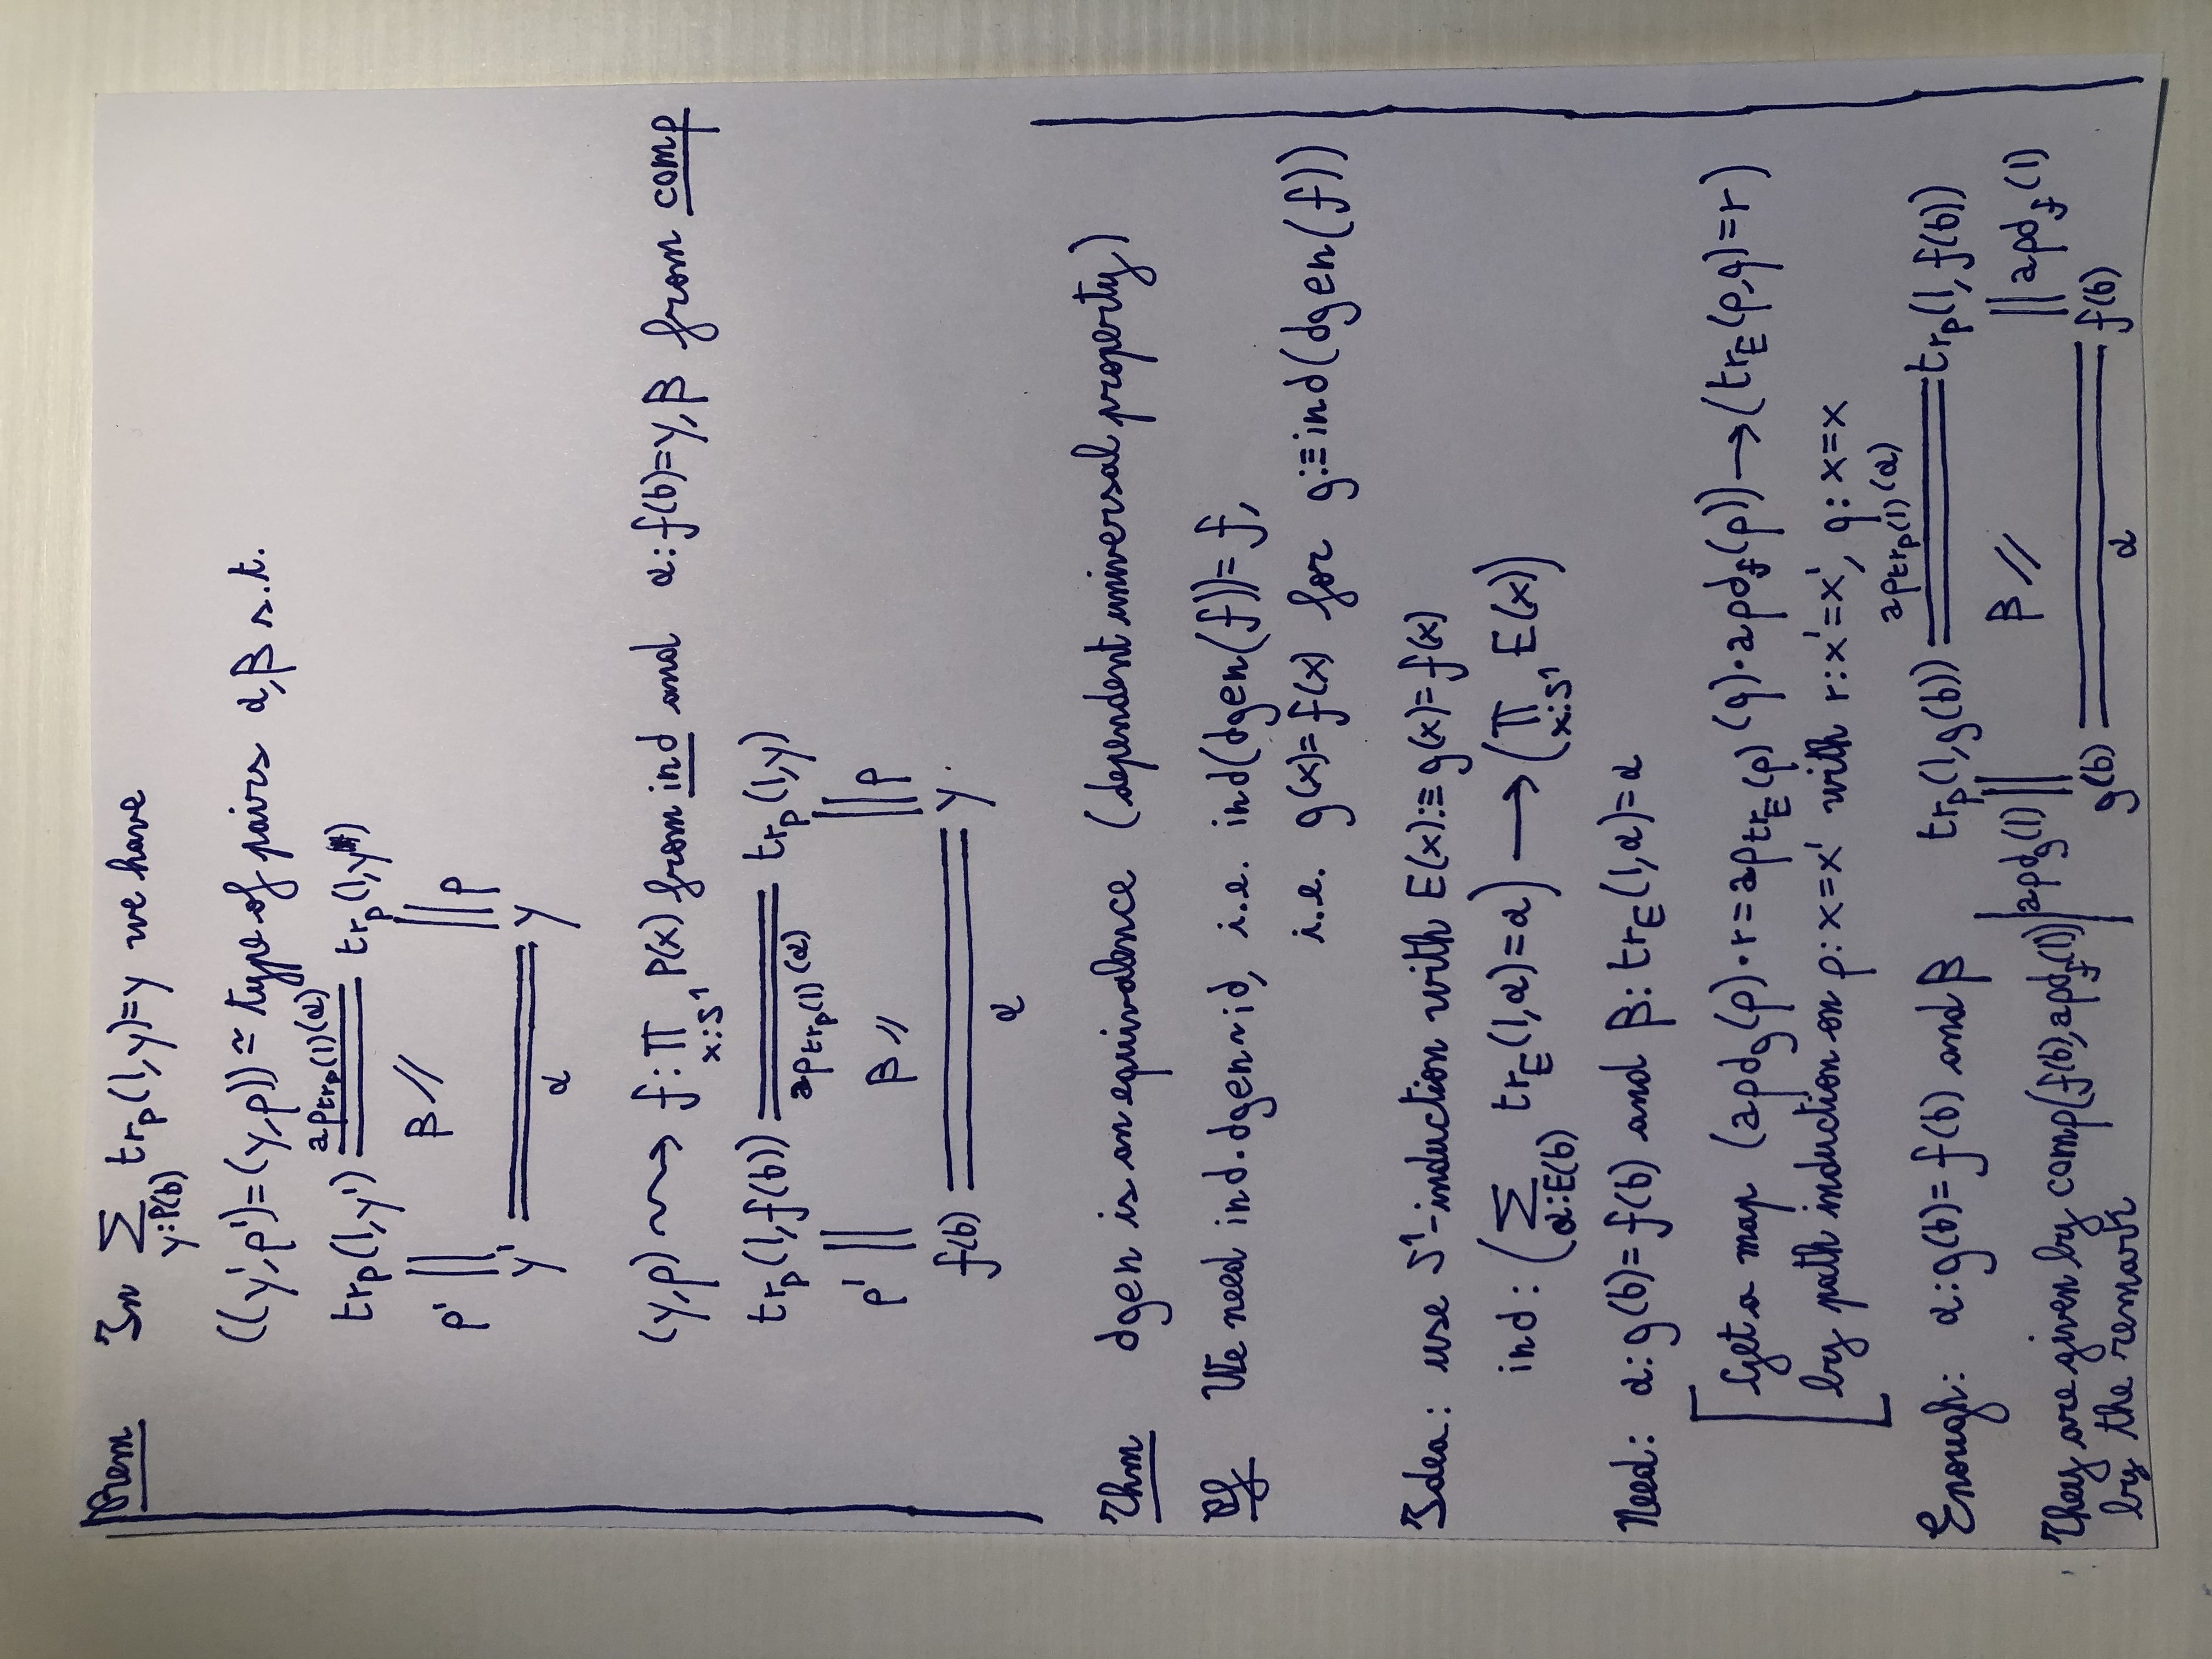 Rem In ∑ tr_P(l,y)=y we have
y:P(b)
((y',p')=(y,p)) ≃ type of pairs α,β s.t.
ap_{tr_P(l)}(α)
tr_P(l,y') tr_P(l,y)
p' || β // || p
y' y
α
(y,p) ⇝ f: ∏ P(x) from ind and α: f(b)=y, β from comp
x:S¹
tr_P(l,f(b)) tr_P(l,y)
ap_{tr_P(l)}(α)
p' || β // || p
f(b) y.
α
Thm dgen is an equivalence (dependent universal property)
Pf We need ind∘dgen~id, i.e. ind(dgen(f))=f,
i.e. g(x)=f(x) for g:≡ind(dgen(f))
Idea: use S¹-induction with E(x):≡g(x)=f(x)
ind: (∑ tr_E(l,α)=α) ⟶ (∏ E(x))
α:E(b) x:S¹
Need: α: g(b)=f(b) and β: tr_E(l,α)=α
Get a map (apd_g(p)·r=ap_{tr_E(p)}(q)·apd_f(p)) → (tr_E(p,q)=r)
by path induction on p: x=x' with r: x'=x', q: x=x
ap_{tr_P(l)}(α)
Enough: α: g(b)=f(b) and β tr_P(l,g(b)) tr_P(l,f(b))
apd_g(l) || β // || apd_f(l)
They are given by comp(f(b),apd_f(l))
g(b) f(b)
by the remark α